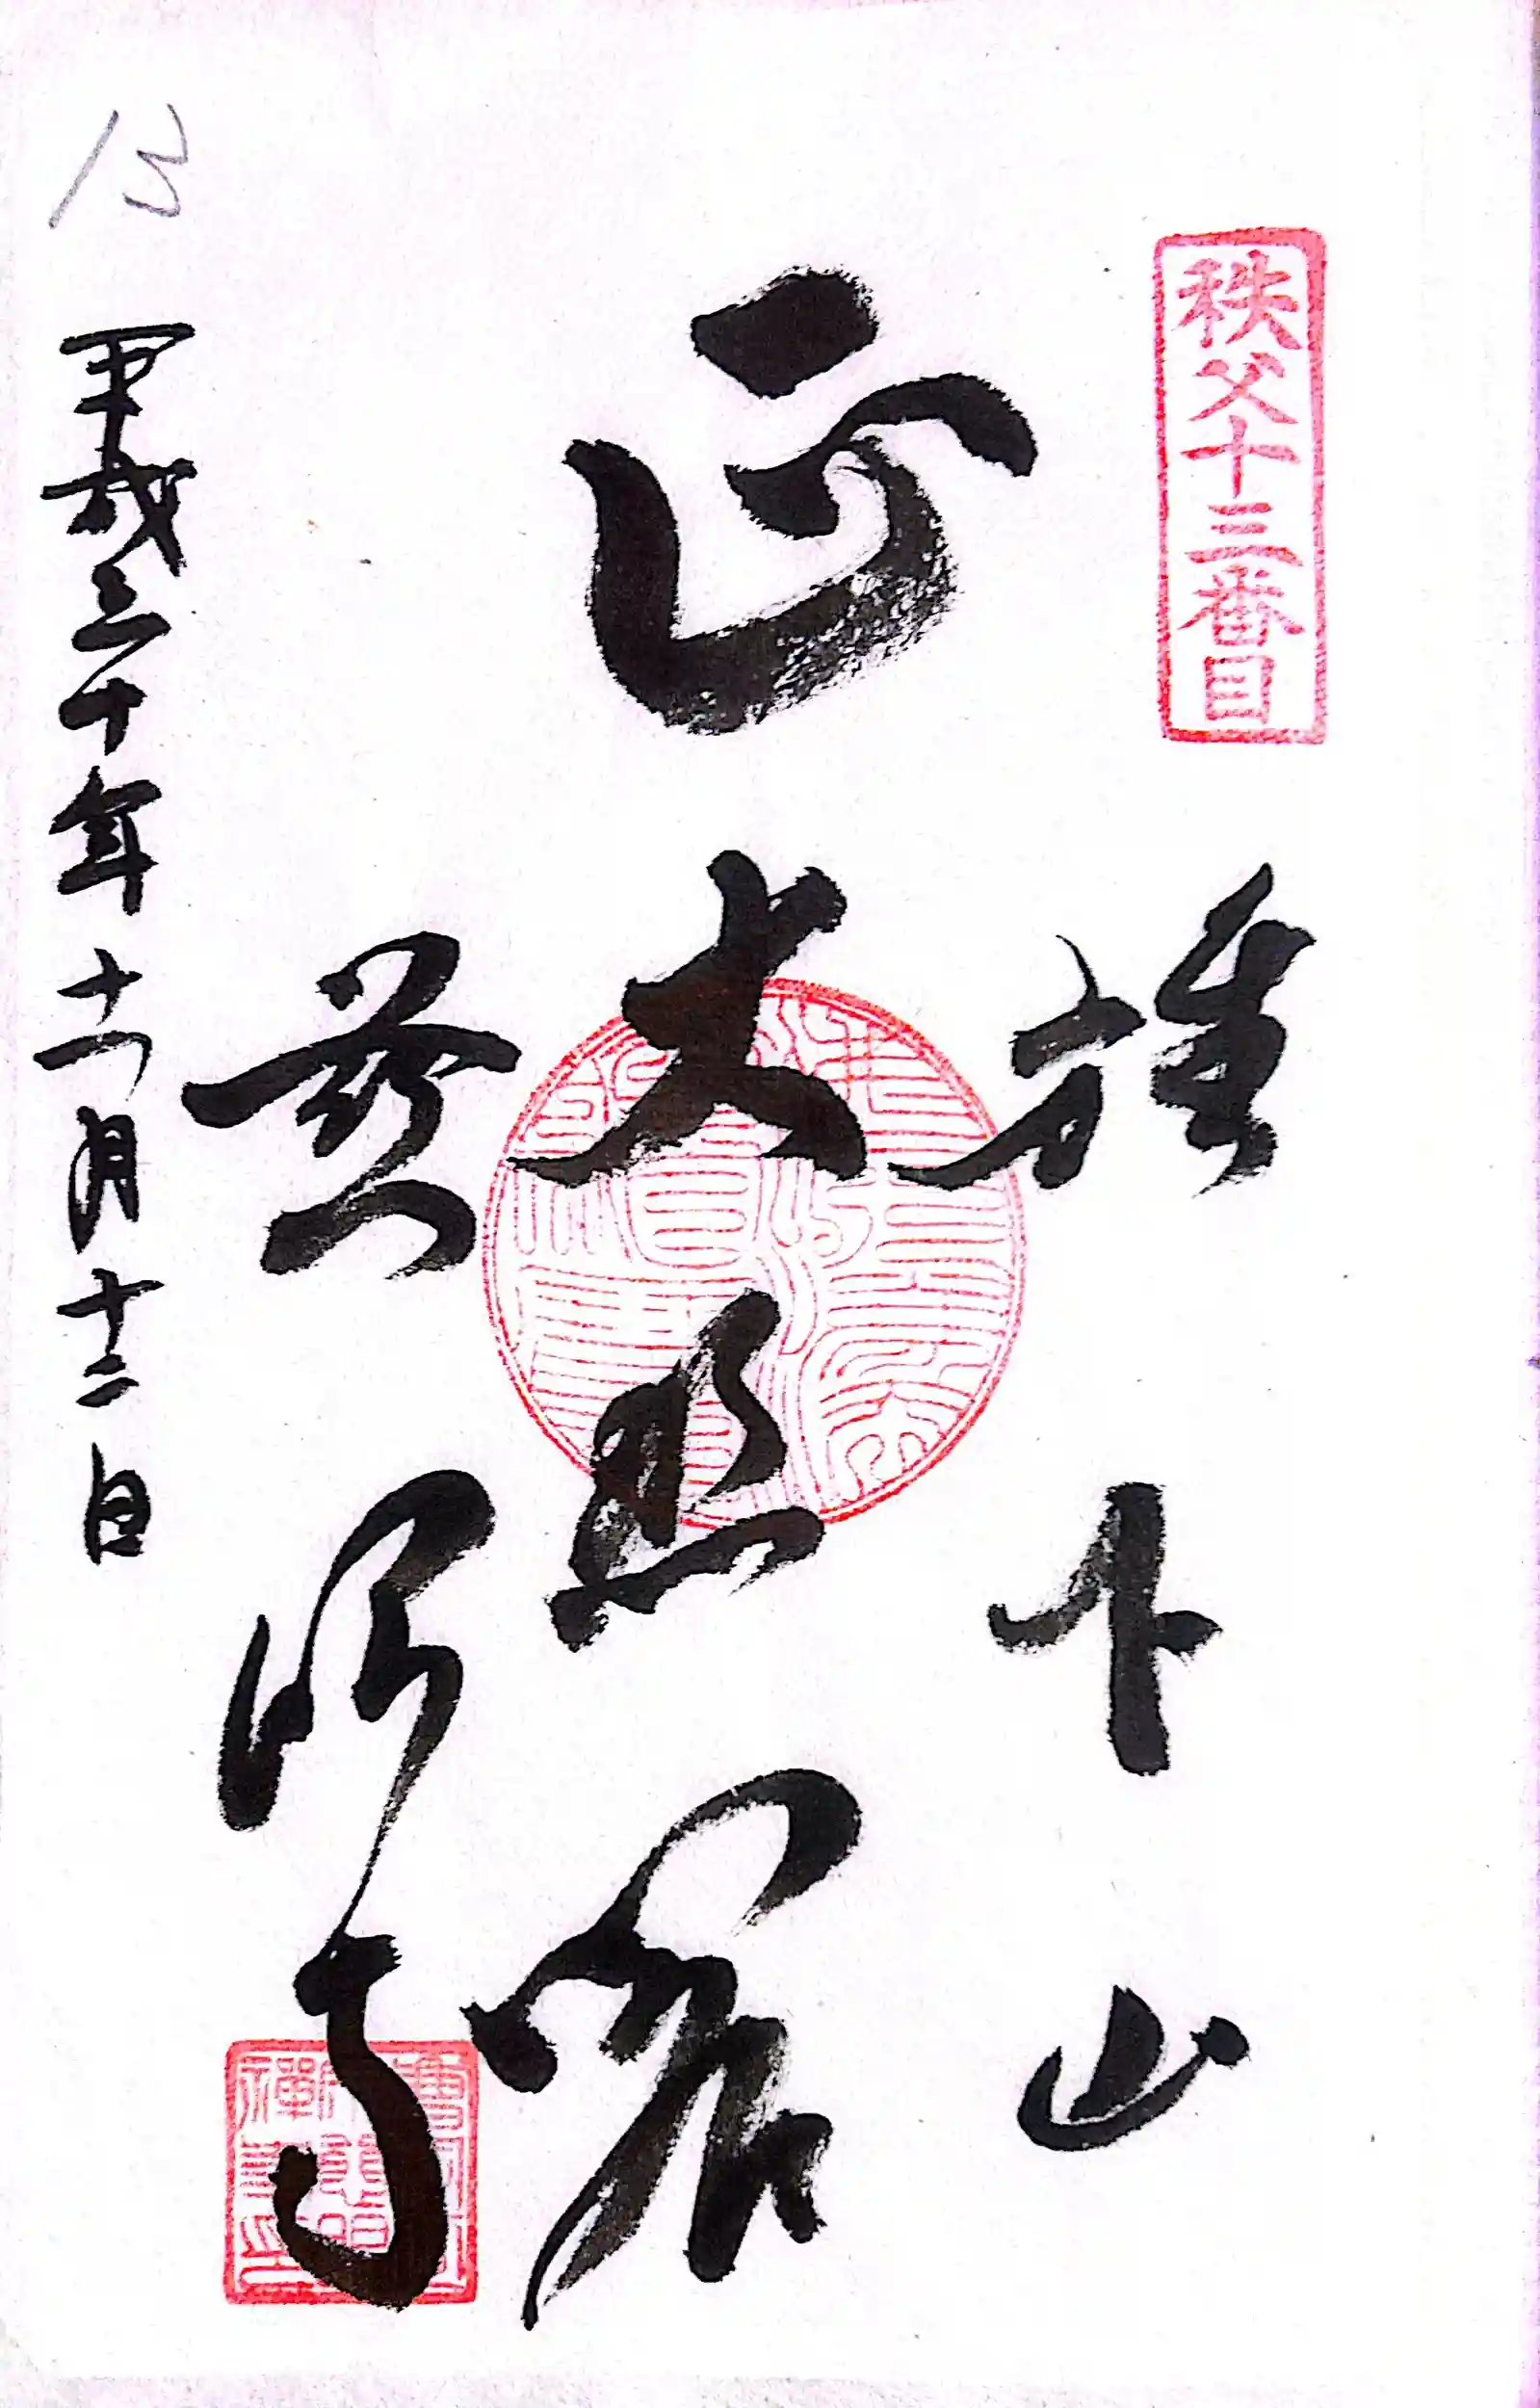 秩父十三番目
旗下山
正大悲閣
慈眼寺
平成三十年十一月十二日
13